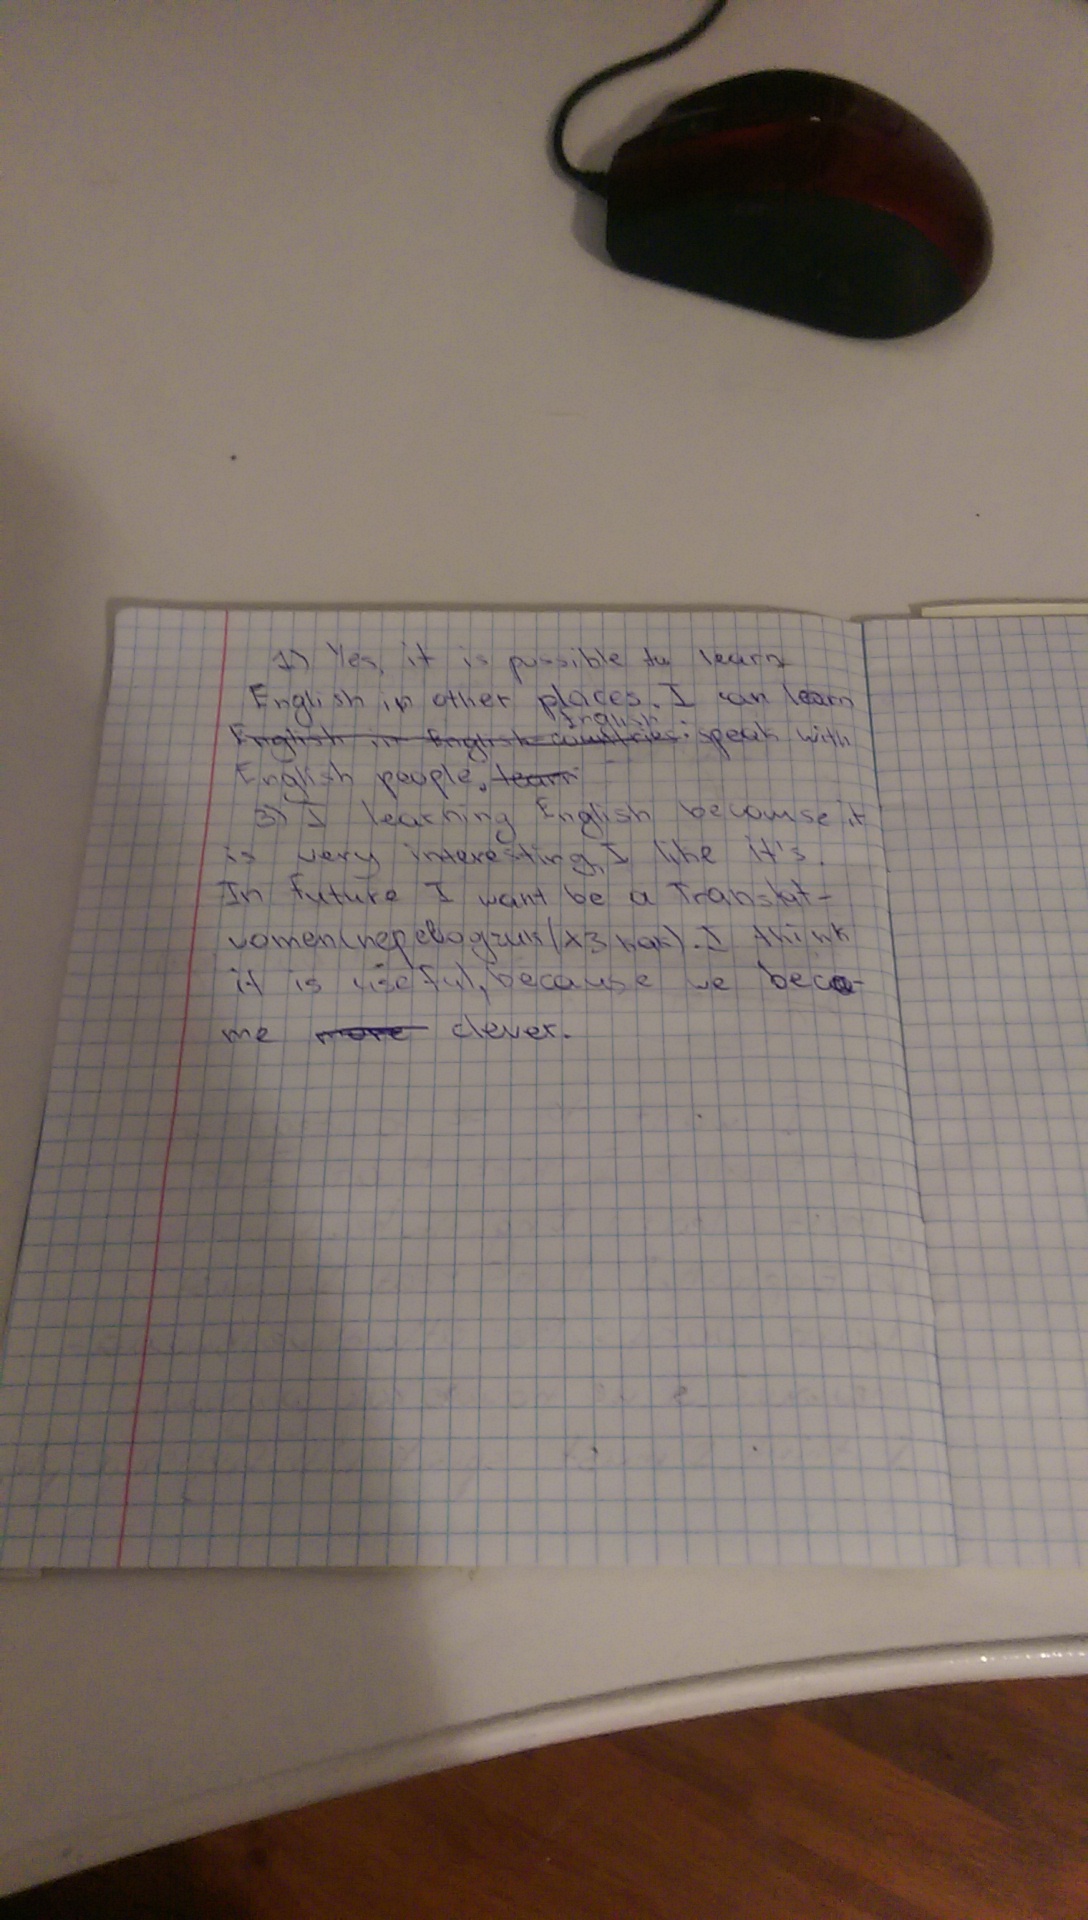 1) Yes, it is possible to learn
English in other places. I can learn
English
English in English countries. speak with
English people. learn
3) I learning English becouse it
is very interesting, I like it's.
In future I want be a Translat-
vomen(переводчик(хз как). I think
it is useful, because we beco-
me more clever.